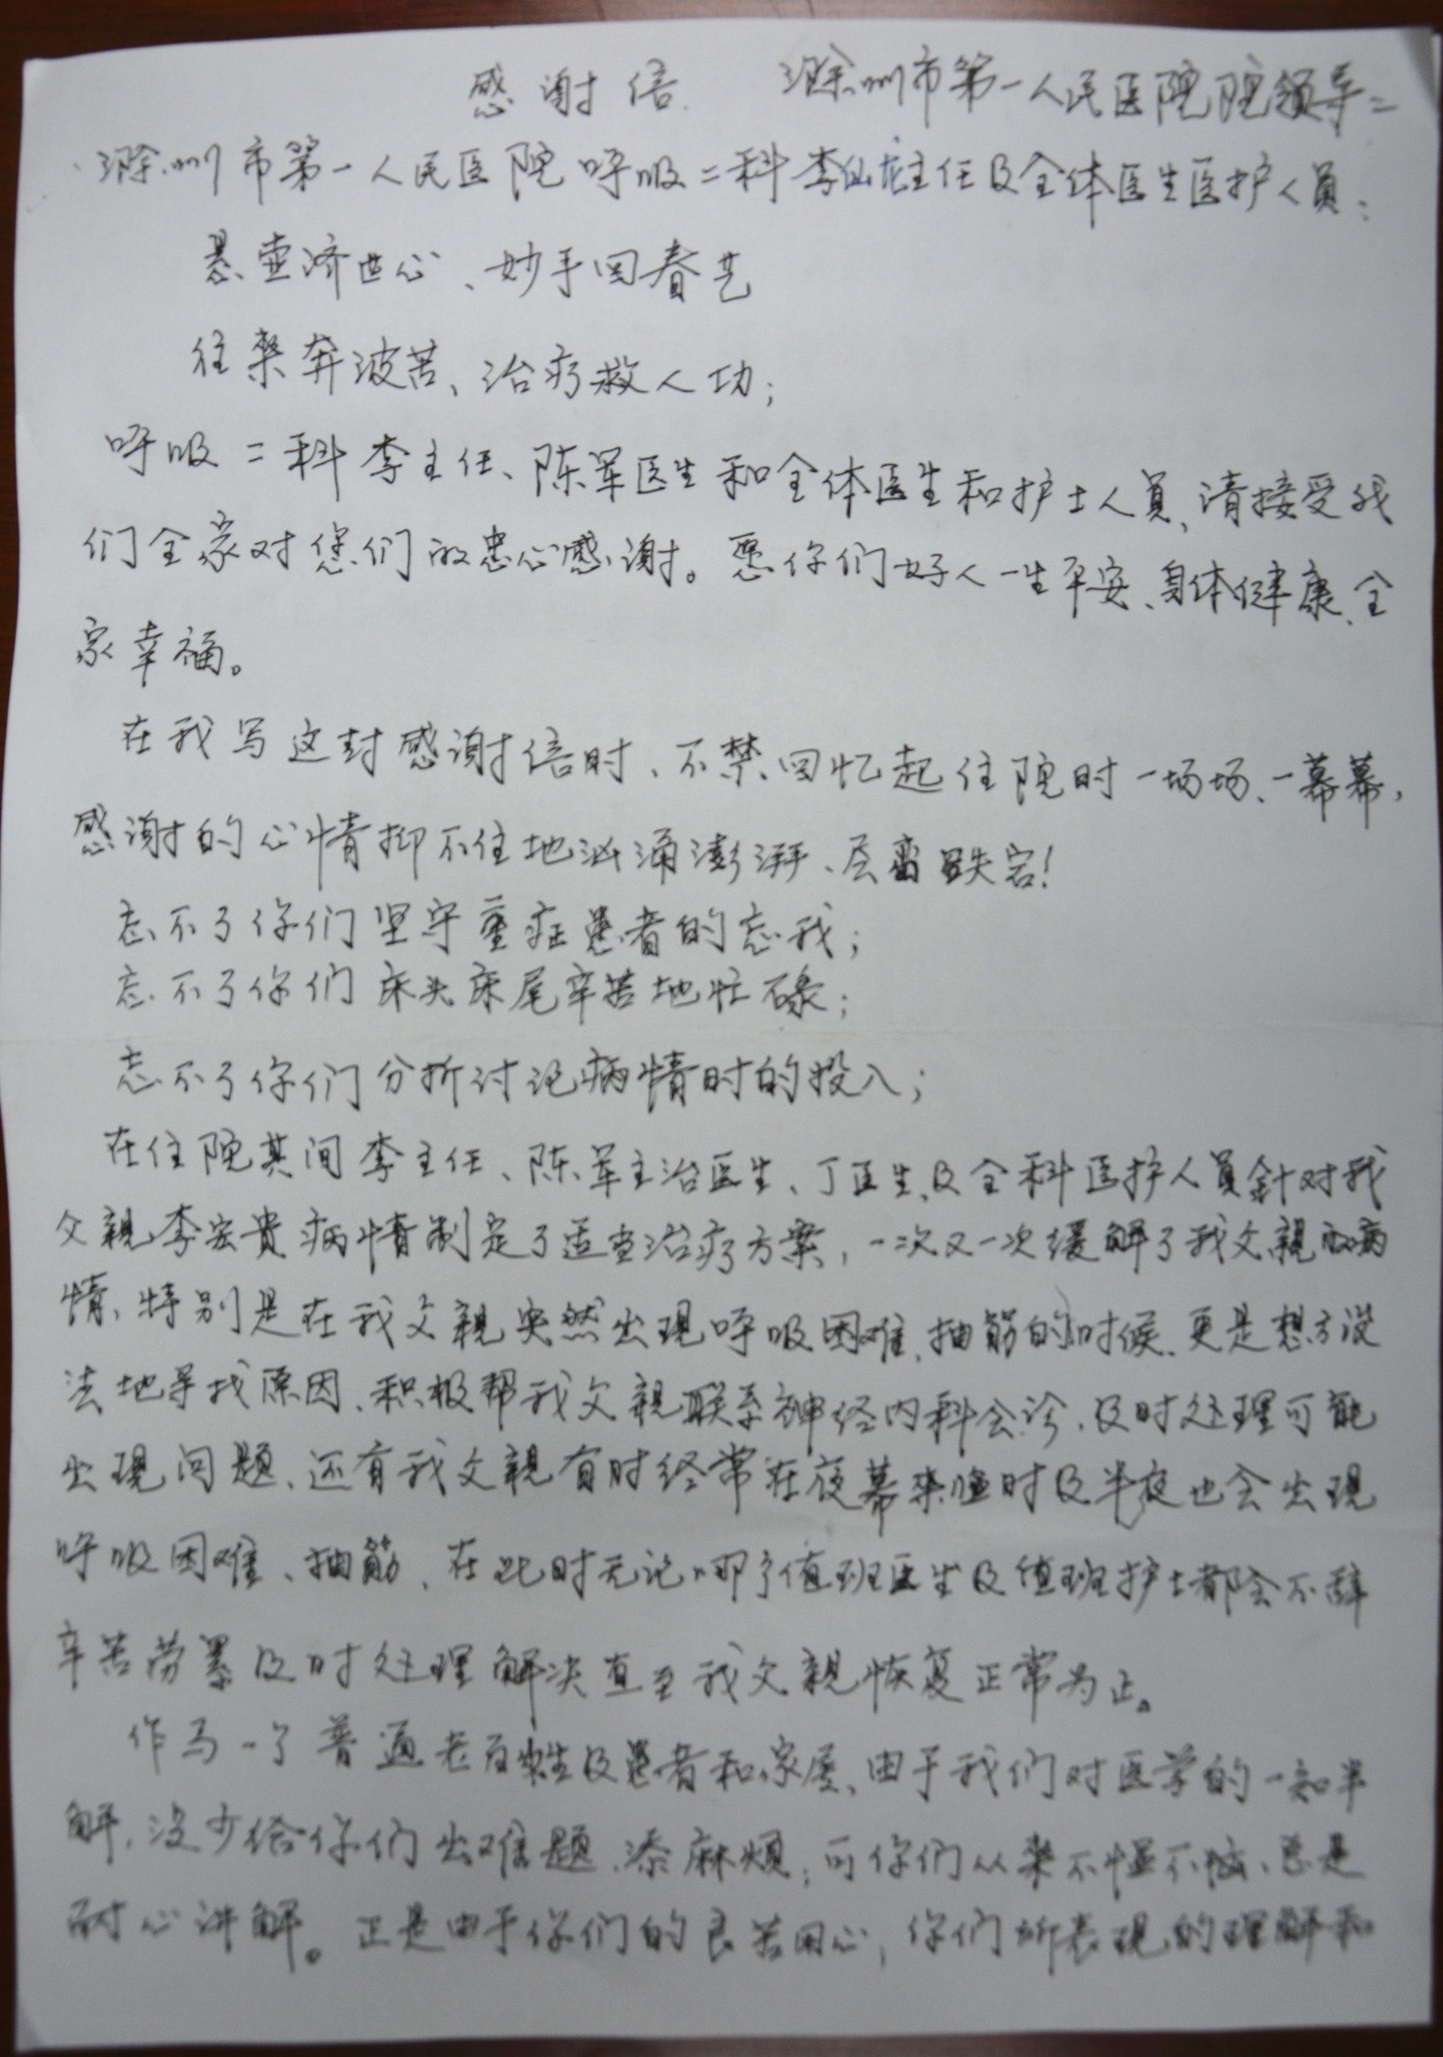 感谢信 滁州市第一人民医院院领导二
滁州市第一人民医院呼吸二科李仙龙主任及全体医生医护人员:
悬壶济世心、妙手回春艺
往来奔波苦、治疗救人功;
呼吸二科李主任、陈军医生和全体医生和护士人员,请接受我
们全家对您们的忠心感谢。愿你们好人一生平安、身体健康、全
家幸福。
在我写这封感谢信时、不禁回忆起住院时一场场、一幕幕,
感谢的心情抑不住地汹涌澎湃、!
忘不了你们坚守重症患者的忘我;
忘不了你们床头床尾辛苦地忙碌;
忘不了你们分折讨论病情时的投入;
在住院其间李主任、陈军主治医生、丁医生及全科医护人员針对我
父親李宏贵病情制定了适当治疗方案,一次又一次缓解了我父親的病
情、特别是在我父親突然出现呼吸困难、抽筋的时候、更是想方设
法地寻找原因、积极帮我父親联系神经内科会诊、及时处理可能
出现问题、还有我父親有时经常在夜幕来临时及半夜也会出现
呼吸困难、抽筋、在此时无论哪个值班医生及值班护士都会不辞
辛苦劳累及时处理解决直至我父親恢复正常为止。
作为一个普通老百姓及患者和家属、由于我们对医学的一知半
解、没少给你们出难题、添麻烦;可你们从来不愠不恼、总是
耐心讲解。正是由于你们的良苦用心,你们所表现的理解和